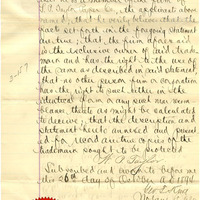 named; that he verily believes that the
fact set forth in the foregoing statement
are true; that the firm above said
is the exclusive owner of said trade
mark and has the right to the use of
the same as described in said statement
that no other person firm or corporation
has the right to such either in the
identical form or any such near resem-
blance thereto as might be calculated
to deceive; that the description and
statement hereto annexed and presented
for record are true copies of the
trademark sought to be protected
Subscribed and sworn to before me
this 26th day of October A.D. 1894